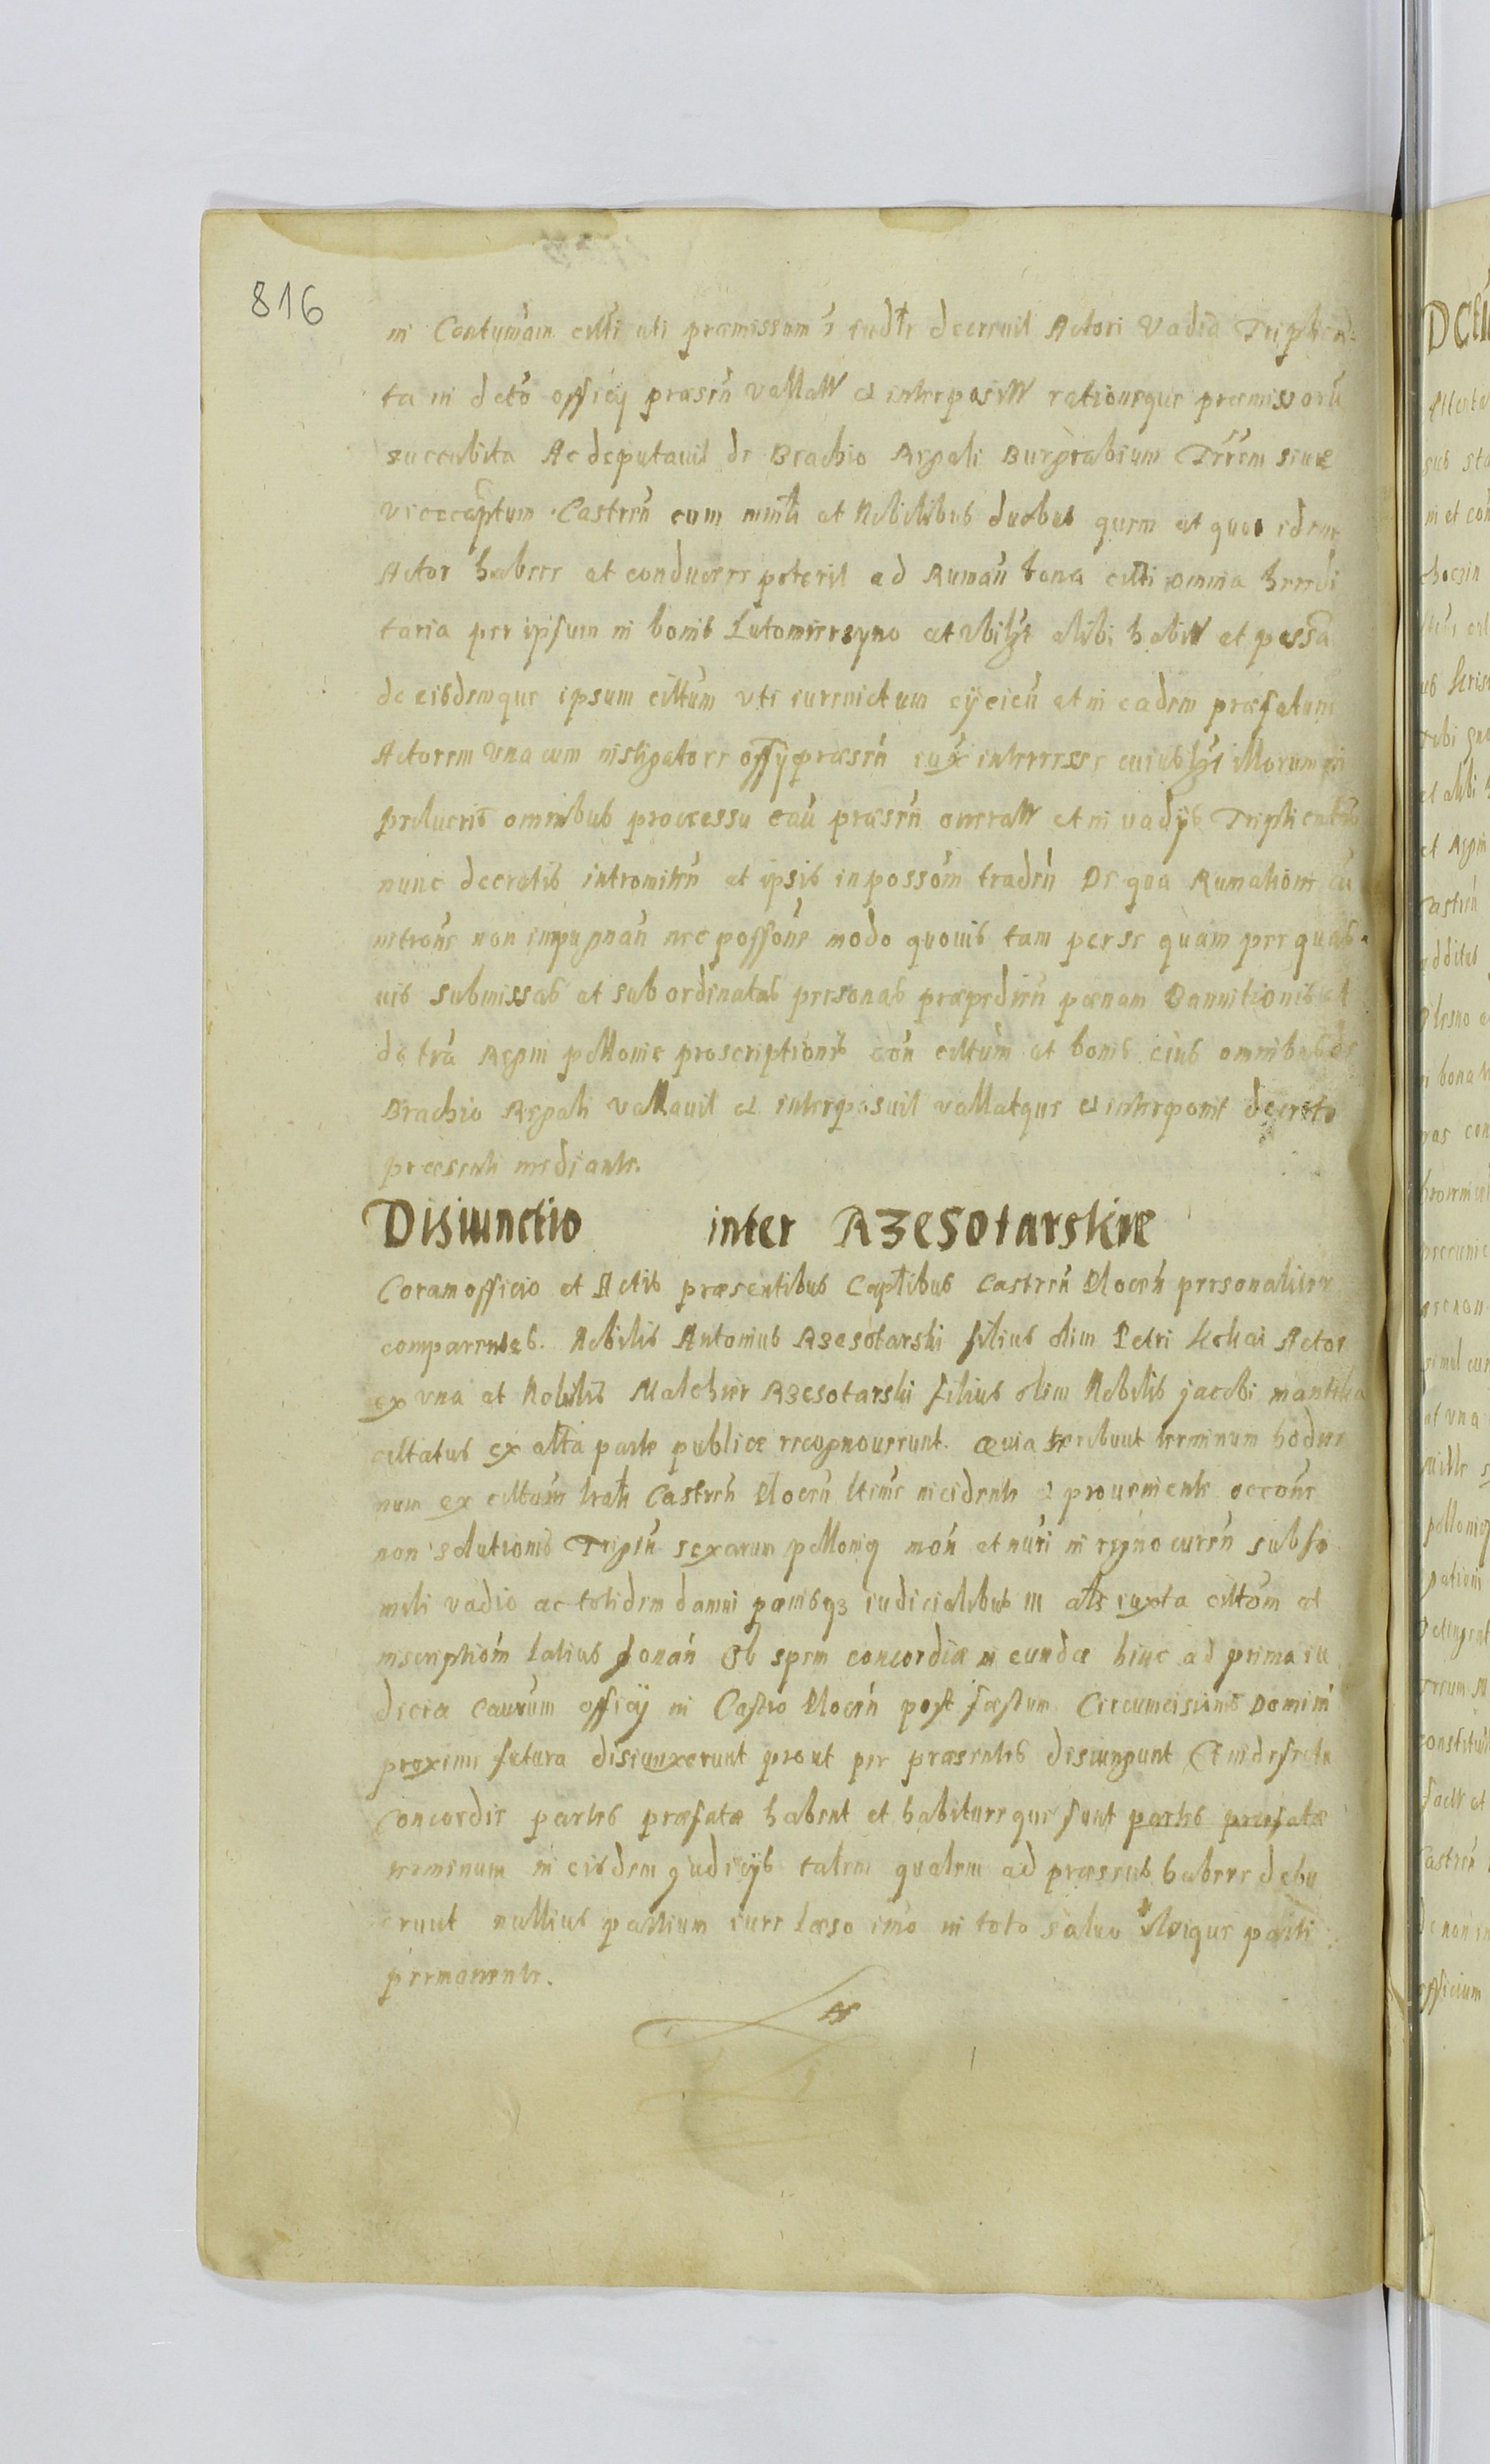 816
in Contumām citti uti præmissum ē iudtr decrevit Actori Vadia Triplica
ta in detō officy præsēn vallatt et interpositt rationeque præmissorū
succubita Ac deputavit de Brachio Regali Burgrabium Trrem siue
vicecaptum Castreñ cum mintli et Nobilibus duobus quem et quos idem
Actor habere et conducere poterit ad Rumañ bona citti omnia heredi
taria per ipsum in bonis Lutomierzyno et ubilzt alibi habitt et possā
de eisdemque ipsum cittum uti iurevictum eijcieñ et in eadem præfatum
Actorem una cum instigatore officy præsēn iux interesse cuiuslzt illorum in
prelucris omnibus processu cau præsēn oneratt et in vadijs Triplicatis
nunc decretis intromitteñ et ipsis in possom tradeñ De qua Rumatione eu
intrōne non impugnañ nec possōne modo quovis tam per se quam per quas
vis submissas et subordinatas personas præpedieñ pœnam Bannitionis et
de trā Regni pollonie proscriptionis coñ cittum et bonis eius omnibus de
Brachio Regali vallavit et interposuit vallatque et interponit decreto
præsenti mediante.
Disiunctio inter Rzesotarskie
Coram officio et Actis præsentibus Captibus Castreñ Plocēn personaliter
comparentes. Nobilis Antonius Rzesotarski filius olim Petri Actor
ex una et Nobilis Malchier Rzesotarski filius olim Nobilis jacobi mantika
cittatus ex altā parte publice recognouerunt. terminum hodier
num ex cittōm trali Castreñ Plocēn incidente et proueniente occōne
non solutionis Tripēn sexarum pollonig moñ et nūri in regno curēn sub si
mili vadio ac totidem damni pœnisqz iudicialibus in alts iuxta cittōm et
inscriptiōm latius sonañ Ob spem concordiæ in eundæ hinc ad prima iu
dicia Caurum officy in Castro Plocēn post fæstum Circumcisionis Domini
proxime futura disiunxerunt prout per præsentes disiungunt Et in defectu
Concordie partes præfatæ habent et habitureque sunt partes præfatæ
terminum in eisdem judicijs talem qualem ad præsens habere debu
erunt nullius partium iure læso imo in toto saluo utrique parti
permanente.